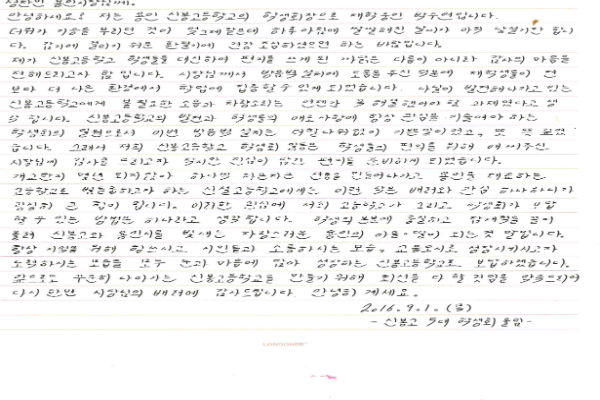 안녕하세요? 저는 용인 신봉고등학교의 학생회장으로 재학중인 박수연입니다.
더위가 기승을 부리던 것이 엊그제같은데 하루아침에 쌀쌀해진 날씨가 아직 낯설기만 합니
다. 감기에 걸리기 쉬운 환절기에 건강 조심하셨으면 하는 바람입니다.
제가 신봉고등학교 학생들을 대신하여 편지를 쓰게 된 까닭은 다름이 아니라 감사의 마음을
전해드리고자 함 입니다. 시장님께서 방음벽 설치에 도움을 주신 덕분에 재학생들이 전
보다 더 나은 환경에서 학업에 집중할 수 있게 되었습니다. 나날이 발전해나가고 있는
신봉고등학교에게 불필요한 소음과 차량소리는 언젠가 꼭 해결해야 할 과제였다고 생
각 합니다. 신봉고등학교의 발전과 학생들의 애로사항에 항상 관심을 기울여야 하는
학생회의 일원으로서 이번 방음벽 설치는 더할나위없이 기쁜일이었고, 뜻 깊었
습니다. 그래서 저희 신봉고등학교 학생회 일동은 학생들의 편의를 위해 애써주신
시장님께 감사를 드리고자 작지만 진심이 담긴 편지를 준비하게 되었습니다.
개교한지 몇년 되지않아 하나의 자랑스런 전통을 만들어나가고 용인을 대표하는
고등학교로 발돋움하고자 하는 신설고등학교에게는, 이런 작은 배려와 관심 하나하나가
굉장히 큰 힘이 됩니다. 이러한 관심에 저희 고등학교가 그리고 학생회가 보답
할 수 있는 방법은 하나라고 생각 합니다. 학생의 본분에 충실하고 잠재력을 끌어
올려 신봉고와 용인시를 빛내는 자랑스러운 용인의 아들·딸이 되는 것 말입니다.
항상 시민을 위해 힘쓰시고 시민들과 소통하시는 모습,
도전하시는 모습을 모두 눈과 마음에 담아 성장하는 신봉고등학교로 보답하겠습니다.
앞으로도 꾸준히 나아가는 신봉고등학교를 만들기 위해 최선을 다 할 것임을 약속드리며
다시 한번 시장님의 배려에 감사드립니다. 안녕히 계세요.
2016. 9. 1. (목)
- 신봉고 5대 학생회 올림 -